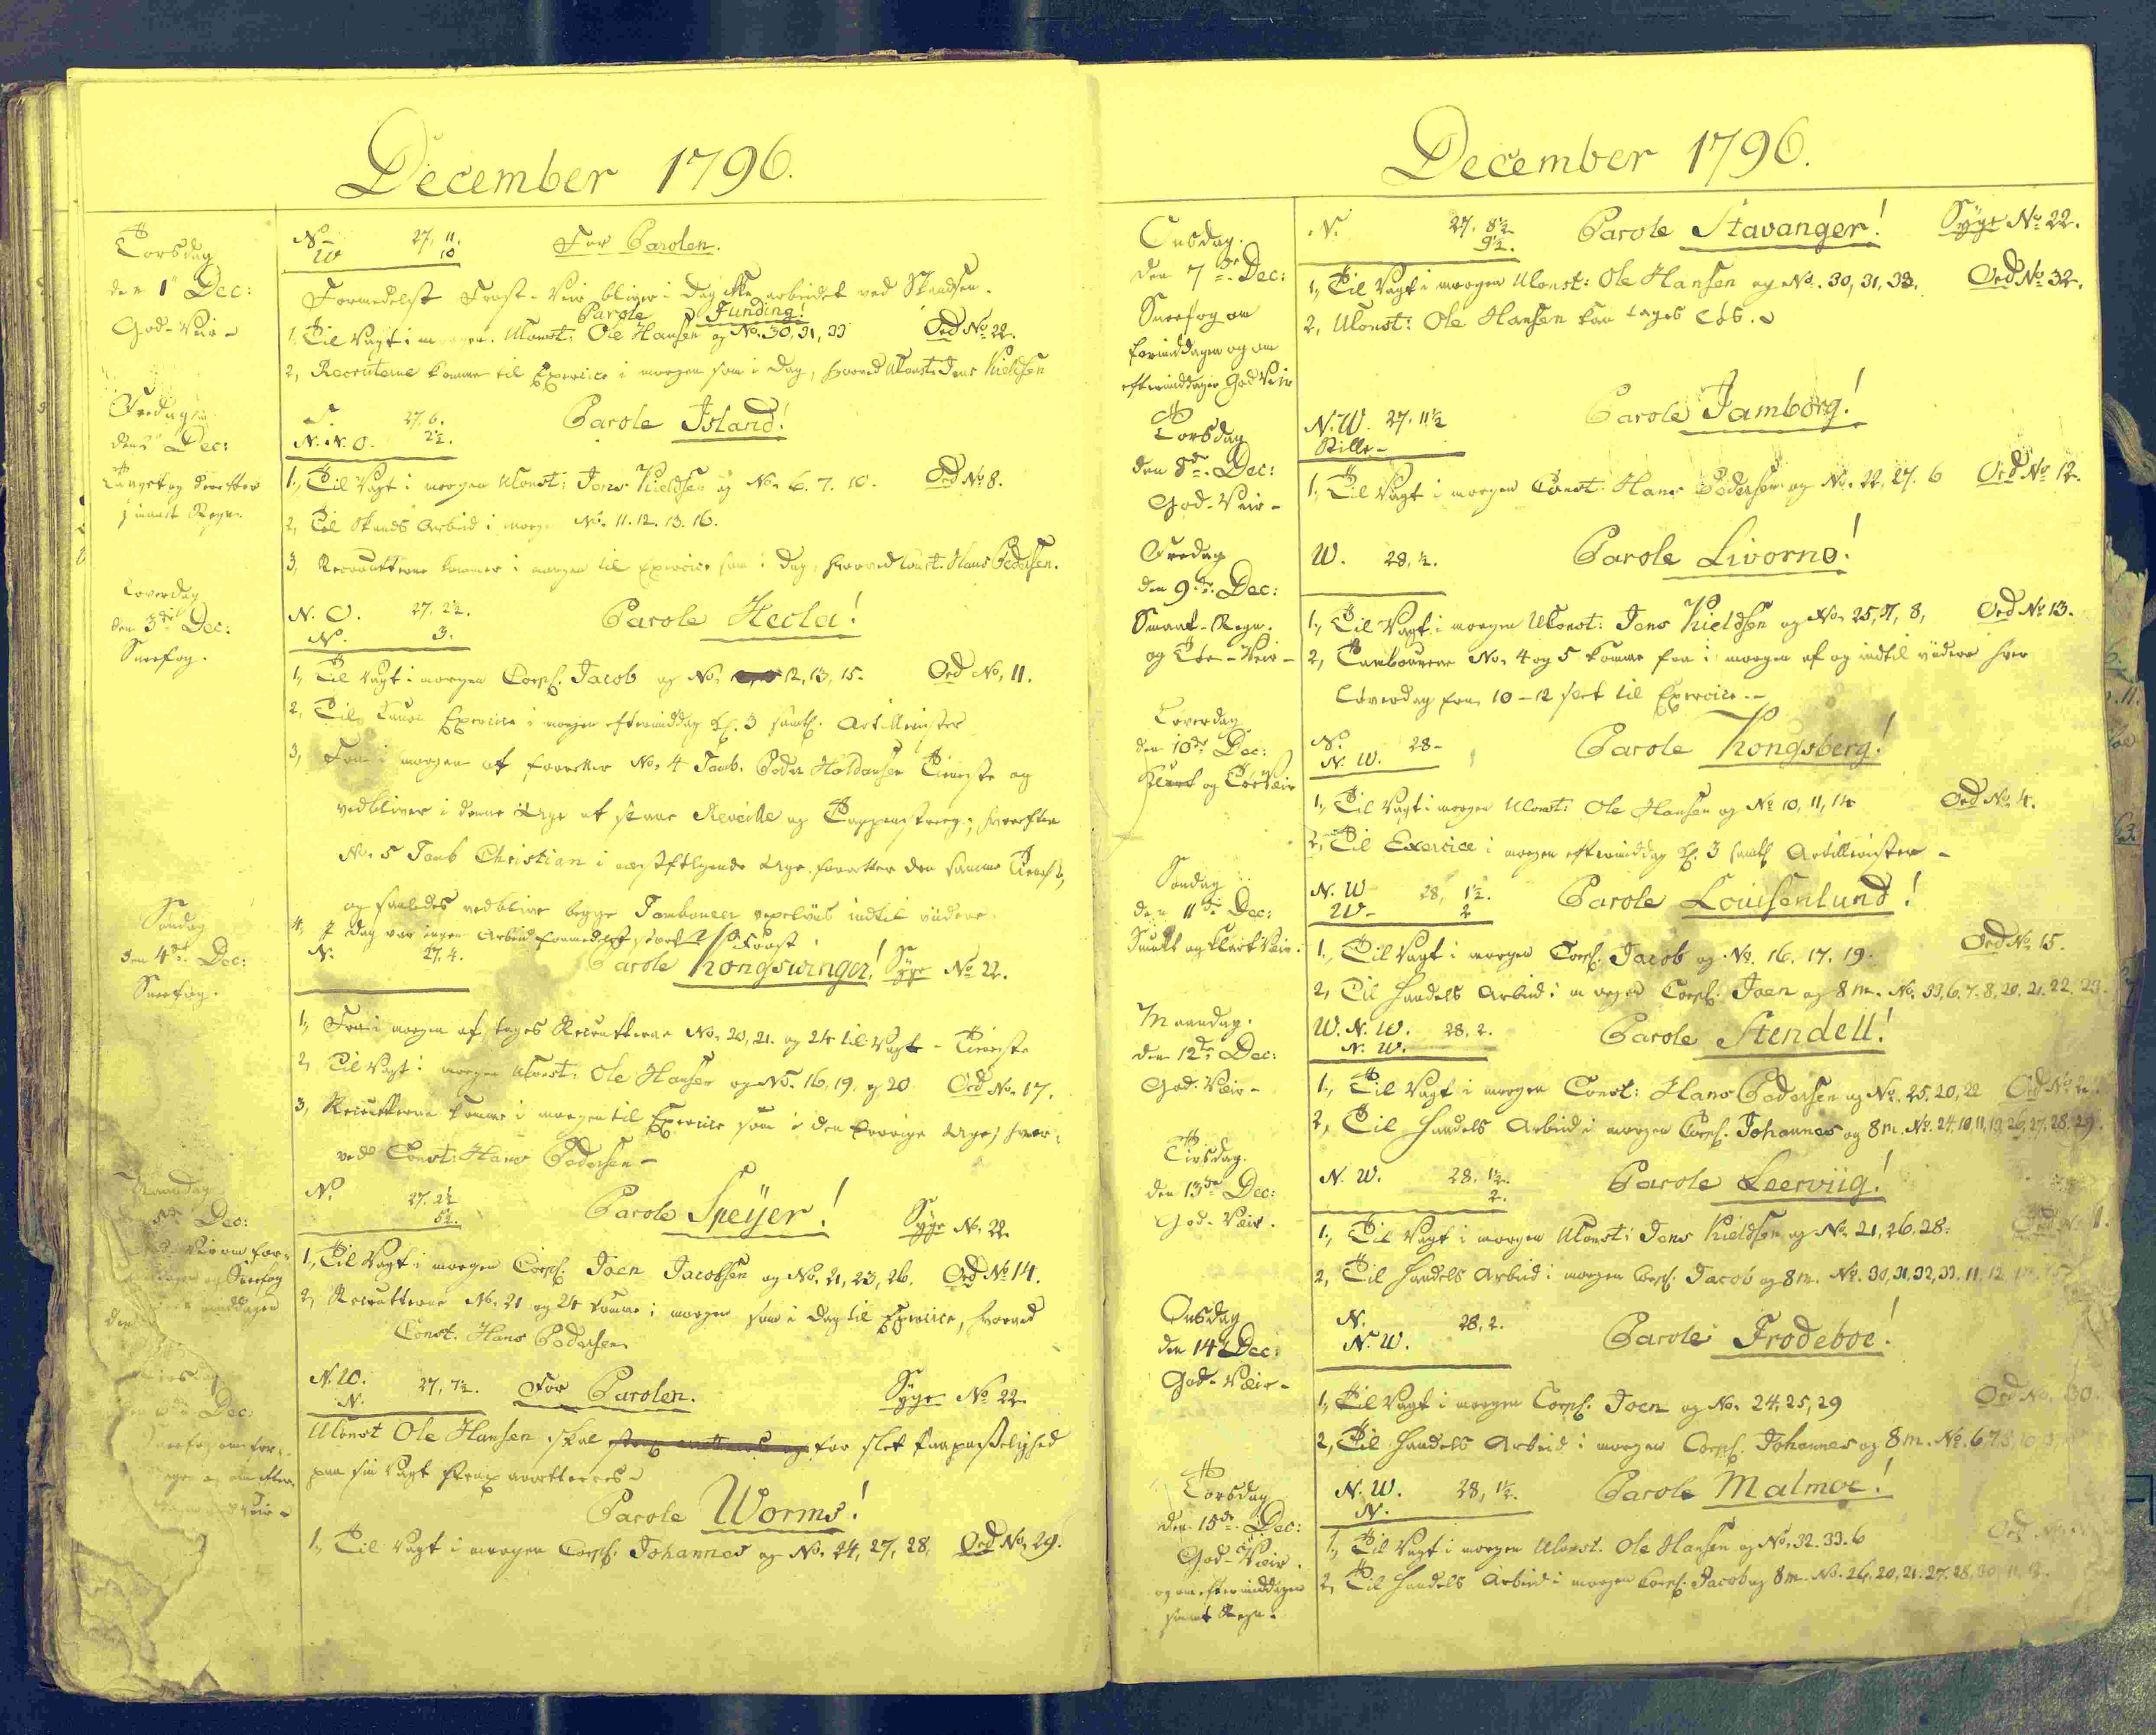 December 1796.
Torsdag
den 1ste Dec:
God-Veir-
N. 27, 11.
W 10
For Parolen.
Formedelst Frost-Veir bliver i Dag ikke arbeidet ved Skandsen.
Parole Funding!
1, Til Vagt i morgen. UConst: Ole Hansen og No. 30, 31, 33 Ord No 22.
2, Recruterne komme til Exercice i morgen som i Dag, hvorved UConst: Jens Kieldsen
Fredag
den 2 Dec:
og derefter
smaat Regn.
S. 27, 6.
N. N. O. 2½.
Parole Island!
1, Til Vagt i morgen UConst: Jens Kieldsen og No. 6. 7. 10. Ord No 8.
2, Til Skands Arbeid i morgen No. 11. 12. 13. 16.
3, Recrutterne kommer i morgen til Exercice som i Dag, hvorved Const. Hans Pedersen.
Løverdag
den 3die Dec:
Sneefog.
N. O. 27. 2½.
N. 3.
Parole Hecla!
1, Til Vagt i morgen Corpl. Jacob og No. 12, 13, 15. Ord No. 11.
2, Til Exercice i morgen eftermiddag Kl. 3 samtl. Artillerister
3, Fra i morgen af forretter No. 4 Tamb. Peder Holdansen Tieneste og
vedbliver i denne Uge at slaae Reveille og Tappenstreeg; hvorefter
No. 5 Tamb Christian i næstfølgende Uge forretter den samme Tieneste,
og saaledes vedblive begge Tambourer vexelviis indtil viidere.
4, I Dag var ingen Arbeid formedelst stærk Frost
Søndag
den 4de Dec:
Sneefog.
N. 27, 4.
Parole Kongswinger! Syge No 22.
1, Fra i morgen af tages Recrutterne No. 20, 21. og 24 til Vagt-Tieneste
2, Til Vagt i morgen UConst: Ole Hansen og No. 16, 19, og 20 Ord No. 17.
3, Recrutterne komme i morgen til Exercice som i den forrige Uge, hvor-
ved Const: Hans Pedersen-
Mandag
Dec:
Veir om for-
og Sneefog
middagen
N. 27. 2½
5½.
Parole Speÿer! Syge No. 22.
1, Til Vagt i morgen Corpl. Joen Jacobsen og No. 21, 23, 26. Ord No 14.
2, Recrutterne No. 21 og 24 komme i morgen som i Dag til Exercice, hvorved
Const. Hans Pedersen
Tirsdag
den 6te Dec:
Sneefog om for-
og om efter-
Veir-
N. W. 27, 7½.
N.
For Parolen. Syge No 22.
UConst Ole Hansen skal for slet Paapasselighed
paa sin Vagt strax arretteres-
Parole Worms!
1, Til Vagt i morgen Corpl. Johannes og No. 24, 27, 28, Ord No. 29.
December 1796.
Onsdag.
den 7de Dec:
Sneefog om
formiddagen og om
eftermiddagen God Veir
N. 27. 8½
9½.
Parole Stavanger! Syge No 22.
1, Til Vagt i morgen UConst: Ole Hansen og No. 30, 31, 33. Ord No 32.
2, UConst: Ole Hansen kan tages løs.
Torsdag
den 8de Dec:
God-Veir-
N. W. 27. 11½
Stille-
Parole Jamborg!
1, Til Vagt i morgen Const. Hans Pedersen og No. 22, 27. 6 Ord No 12.
Fredag
den 9de Dec:
Smaat-Regn.
og Tøe-Veir-
W. 28, ½.
Parole Livorno!
1, Til Vagt i morgen UConst: Jens Kieldsen og No. 25, 7, 8, Ord No 13.
2, Tambourerne No. 4 og 5 komme fra i morgen af og indtil viidere hver
Løverdag fra 10-12 slet til Exercice.-
Løverdag
den 10de Dec:
Klart og Tøe Veir
N. 28-
N. W.
Parole Kongsberg!
1, Til Vagt i morgen UConst: Ole Hansen og No 10, 11, 14 Ord No. 4.
2, Til Exercice i morgen eftermiddag Kl. 3 samtl Artillerister-
Søndag
den 11te Dec:
Smukt og klart Veir.
N. W 28, 1½.
W- 2
Parole Louisenlund!
1, Til Vagt i morgen Corpl: Jacob og No. 16. 17. 19. Ord No 15.
2, Til Handels Arbeid i morgen Corpl: Joen og 8 m. No. 33, 6. 7. 8, 20. 21. 22. 23.
Maandag.
den 12te Dec:
God-Veir-
W. N. W. 28. 2.
N. W.
Parole Stendell!
1, Til Vagt i morgen Const: Hans Pedersen og No. 25, 20, 22 Ord No
2, Til Handels Arbeid i morgen Corpl. Johannes og 8 m. No. 24. 10, 11, 13, 26, 27, 28. 29.
Tirsdag.
den 13de Dec:
God-Veir.
N. W. 28, 1½.
2.
Parole Leerviig!
1, Til Vagt i morgen UConst: Jens Kieldsen og No. 21, 26. 28. Ord No 1.
2, Til Handels Arbeid i morgen Corpl. Jacob og 8 m. No. 30, 31, 32, 33. 11, 12,
Onsdag
den 14de Dec:
God-Veir-
N. 28, 2.
N. W.
Parole Frodeboe!
1, Til Vagt i morgen Corpl: Joen og No. 24, 25, 29 Ord No. 30.
2, Til Handels Arbeid i morgen Corpl: Johannes og 8 m. No. 6, 7, 8,
Torsdag
den 15de Dec:
God-Veir.
og om eftermiddagen
smaat Regn.
N. W. 28, 1½.
N.
Parole Malmoe!
1, Til Vagt i morgen UConst. Ole Hansen og No. 32. 33. 6 Ord
2, Til Handels Arbeid i morgen Corpl. Jacob og 8 m. No. 26, 20, 21. 27. 28, 30,